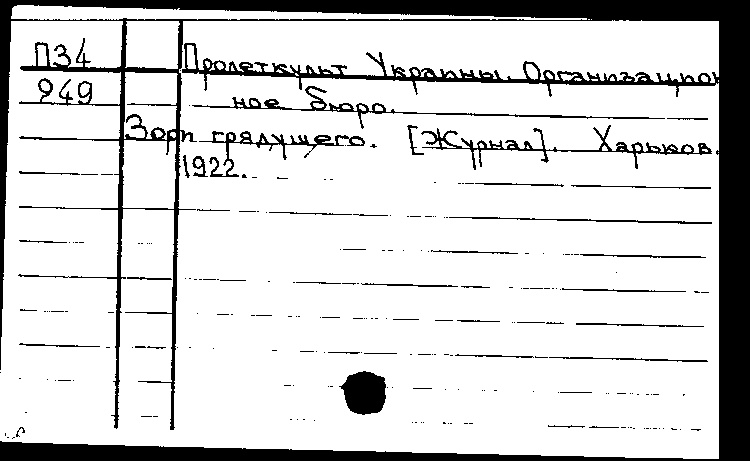 П34 Пролеткульт Украины. Организацион
949 ное бюро.
Зори грядущего. [Журнал]. Харьков.
1922.